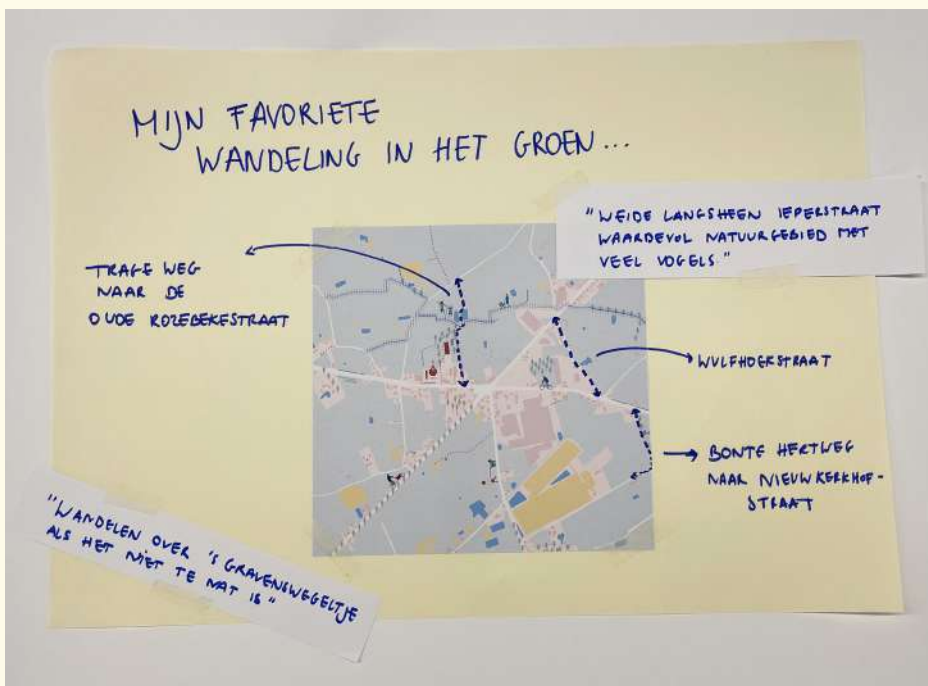 MIJN FAVORIETE
WANDELING IN HET GROEN...
"WEIDE LANGSHEEN IEPERSTRAAT
WAARDEVOL NATUURGEBIED MET
VEEL VOGELS."
TRAGE WEG
NAAR DE
OUDE ROZEBEKESTRAAT
WULFHOEKSTRAAT
BONTE HERTWEG
NAAR NIEUWKERKHOF-
STRAAT
"WANDELEN OVER 'S GRAVENSWEGELTJE
ALS HET NIET TE NAT IS"